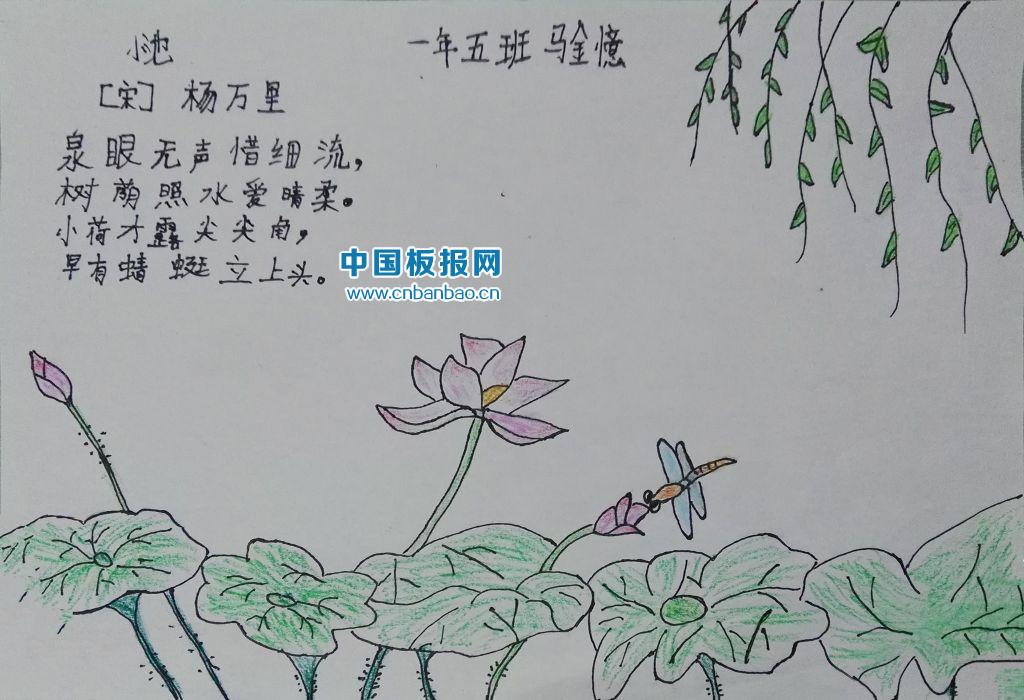 小池
一年五班 马金憶
[宋] 杨万里
泉眼无声惜细流，
树荫照水爱晴柔。
小荷才露尖尖角，
早有蜻蜓立上头。
中国板报网
www.cnbanbao.cn